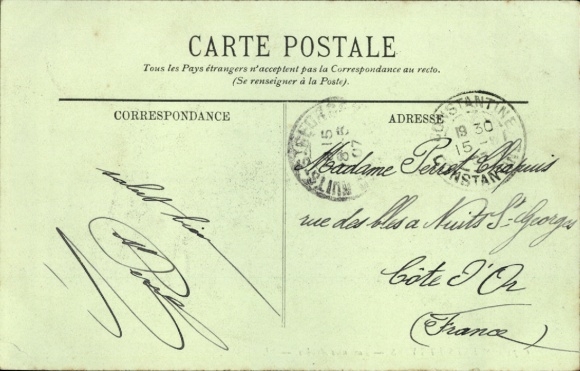 CARTE POSTALE
Tous les Pays étrangers n'acceptent pas la Correspondance au recto.
(Se renseigner à la Poste).
CORRESPONDANCE
ADRESSE
CONSTANTINE
19 30
15
CONSTANTINE
15
07
NUITS
Madame Perrot Chapuis
rue des bles a Nuits St Georges
Côte d'Or
(France)
salut